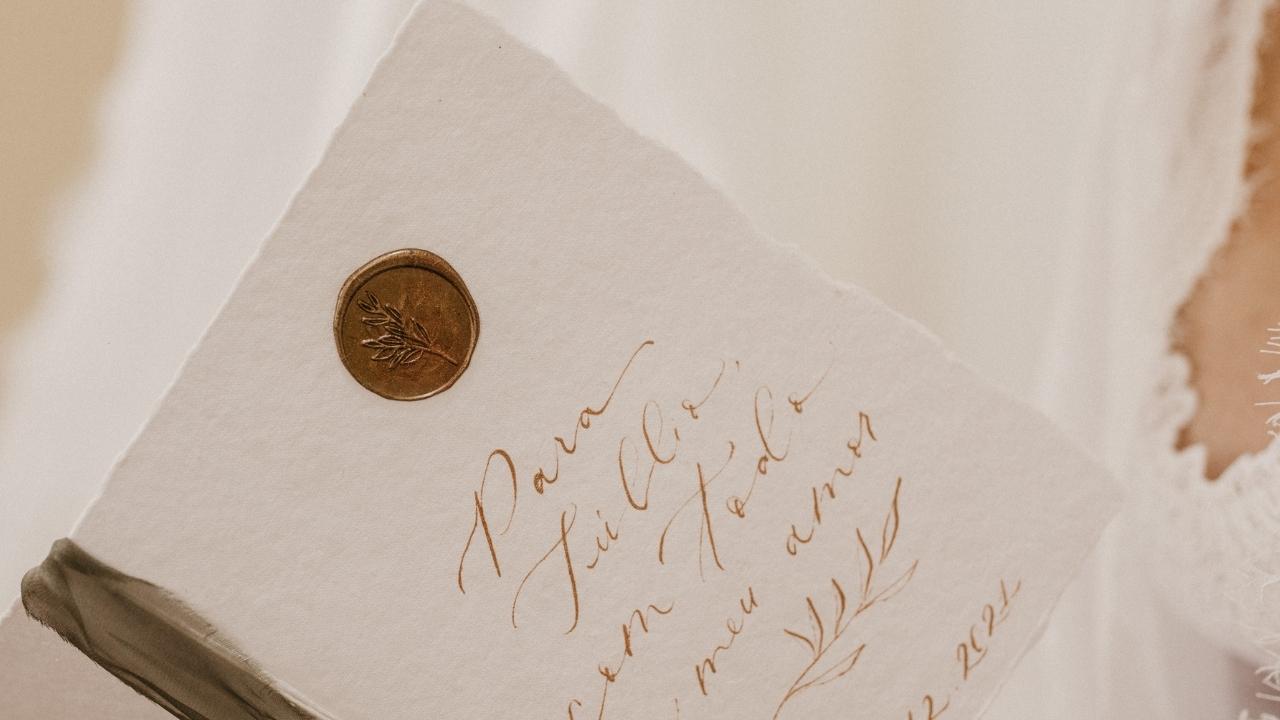 Para
com todo
meu amor
12.2021